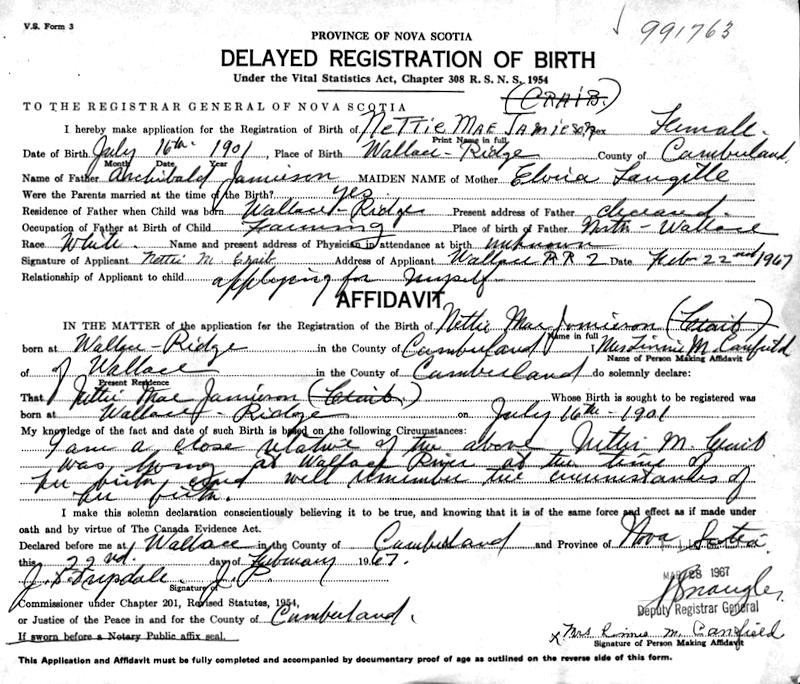 V.S. Form 3
991763
PROVINCE OF NOVA SCOTIA
DELAYED REGISTRATION OF BIRTH
Under the Vital Statistics Act, Chapter 308 R. S. N. S. 1954
TO THE REGISTRAR GENERAL OF NOVA SCOTIA (CRAIB.)
I hereby make application for the Registration of Birth of Nettie Mae Jamieson Sex Female.
Print Name in full
Date of Birth July 16th. 1901 Place of Birth Wallace-Ridge County of Cumberland
Month Date Year
Name of Father Archibald Jamieson MAIDEN NAME of Mother Elvira Langille
Were the Parents married at the time of the Birth? Yes.
Residence of Father when Child was born Wallace-Ridge Present address of Father deceased.
Occupation of Father at Birth of Child Farming Place of birth of Father North-Wallace
Race White. Name and present address of Physician in attendance at birth unknown
Signature of Applicant Nettie M. Craib Address of Applicant Wallace R R 2 Date Feb 22nd 1967
Relationship of Applicant to child applying for myself.
AFFIDAVIT
IN THE MATTER of the application for the Registration of the Birth of Nettie Mae Jamieson (Craib)
Name in full
born at Wallace-Ridge in the County of Cumberland Mrs M. Canfield
Name of Person Making Affidavit
of Wallace in the County of Cumberland do solemnly declare:
Present Residence
That Nettie Mae Jamieson (Craib.) Whose Birth is sought to be registered was
born at Wallace-Ridge on July 16th-1901
My knowledge of the fact and date of such Birth is based on the following Circumstances:
I am a close relative of the above Nettie M. Craib
was living at Wallace River at the time of
her birth and well remember the circumstances of
her birth.
I make this solemn declaration conscientiously believing it to be true, and knowing that it is of the same force and effect as if made under
oath and by virtue of The Canada Evidence Act.
Declared before me at Wallace in the County of Cumberland and Province of Nova Scotia.
this 22nd. day of February 1967.
J. P.
Signature of
MAR 28 1967
Commissioner under Chapter 201, Revised Statutes, 1954,
Deputy Registrar General
or Justice of the Peace in and for the County of Cumberland.
If sworn before a Notary Public affix seal.
x Mrs M. Canfield
Signature of Person Making Affidavit
This Application and Affidavit must be fully completed and accompanied by documentary proof of age as outlined on the reverse side of this form.